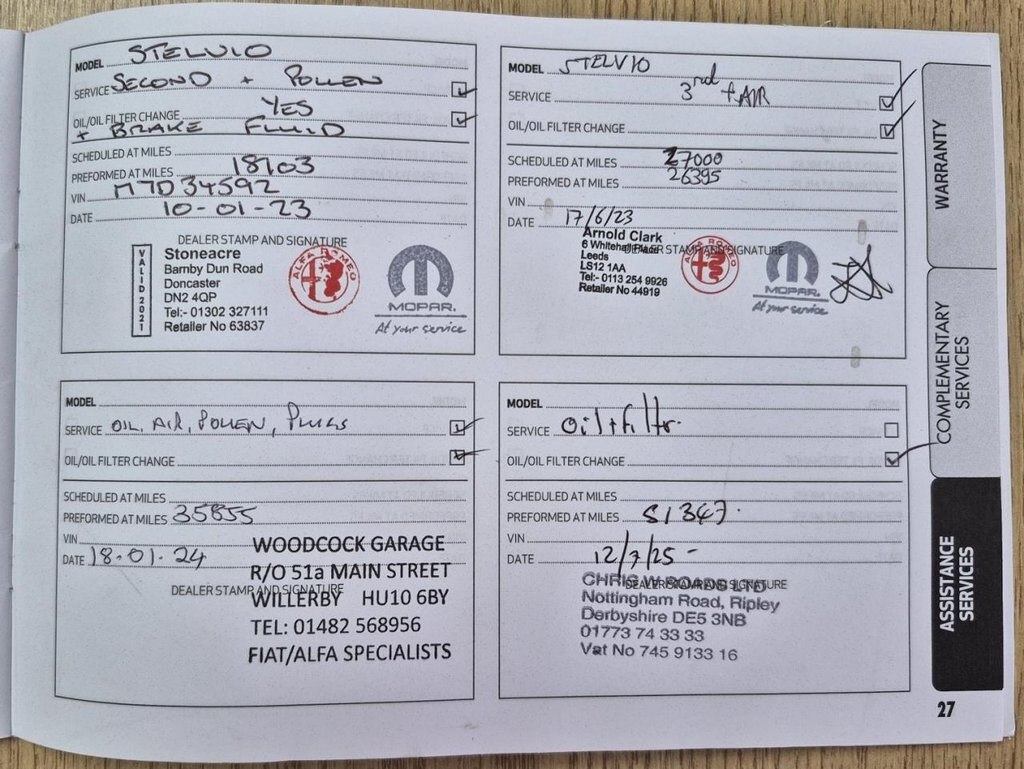 MODEL STELVIO
SERVICE SECOND + POLLEN
OIL/OIL FILTER CHANGE YES
+ BRAKE FLUID
SCHEDULED AT MILES
PREFORMED AT MILES 18103
VIN M7D34592
DATE 10-01-23
DEALER STAMP AND SIGNATURE
VALID 2021
Stoneacre
Barnby Dun Road
Doncaster
DN2 4QP
Tel:- 01302 327111
Retailer No 63837
ALFA ROMEO
MOPAR.
At your service
MODEL STELVIO
SERVICE 3rd + AIR
OIL/OIL FILTER CHANGE
SCHEDULED AT MILES 27000
PREFORMED AT MILES 26395
VIN
DATE 17/6/23
DEALER STAMP AND SIGNATURE
Arnold Clark
6 Whitehall
Leeds
LS12 1AA
Tel:- 0113 254 9926
Retailer No 44919
ALFA ROMEO
MOPAR.
At your service
MODEL
SERVICE OIL, AIR, POLLEN, PLUGS
OIL/OIL FILTER CHANGE
SCHEDULED AT MILES
PREFORMED AT MILES 35855
VIN
DATE 18-01-24
DEALER STAMP AND SIGNATURE
WOODCOCK GARAGE
R/O 51a MAIN STREET
WILLERBY HU10 6BY
TEL: 01482 568956
FIAT/ALFA SPECIALISTS
MODEL
SERVICE Oil + filtr.
OIL/OIL FILTER CHANGE
SCHEDULED AT MILES
PREFORMED AT MILES 51347.
VIN
DATE 12/7/25 -
DEALER STAMP AND SIGNATURE
CHRIS W ROADS LTD
Nottingham Road, Ripley
Derbyshire DE5 3NB
01773 74 33 33
Vat No 745 9133 16
WARRANTY
COMPLEMENTARY
SERVICES
ASSISTANCE
SERVICES
27